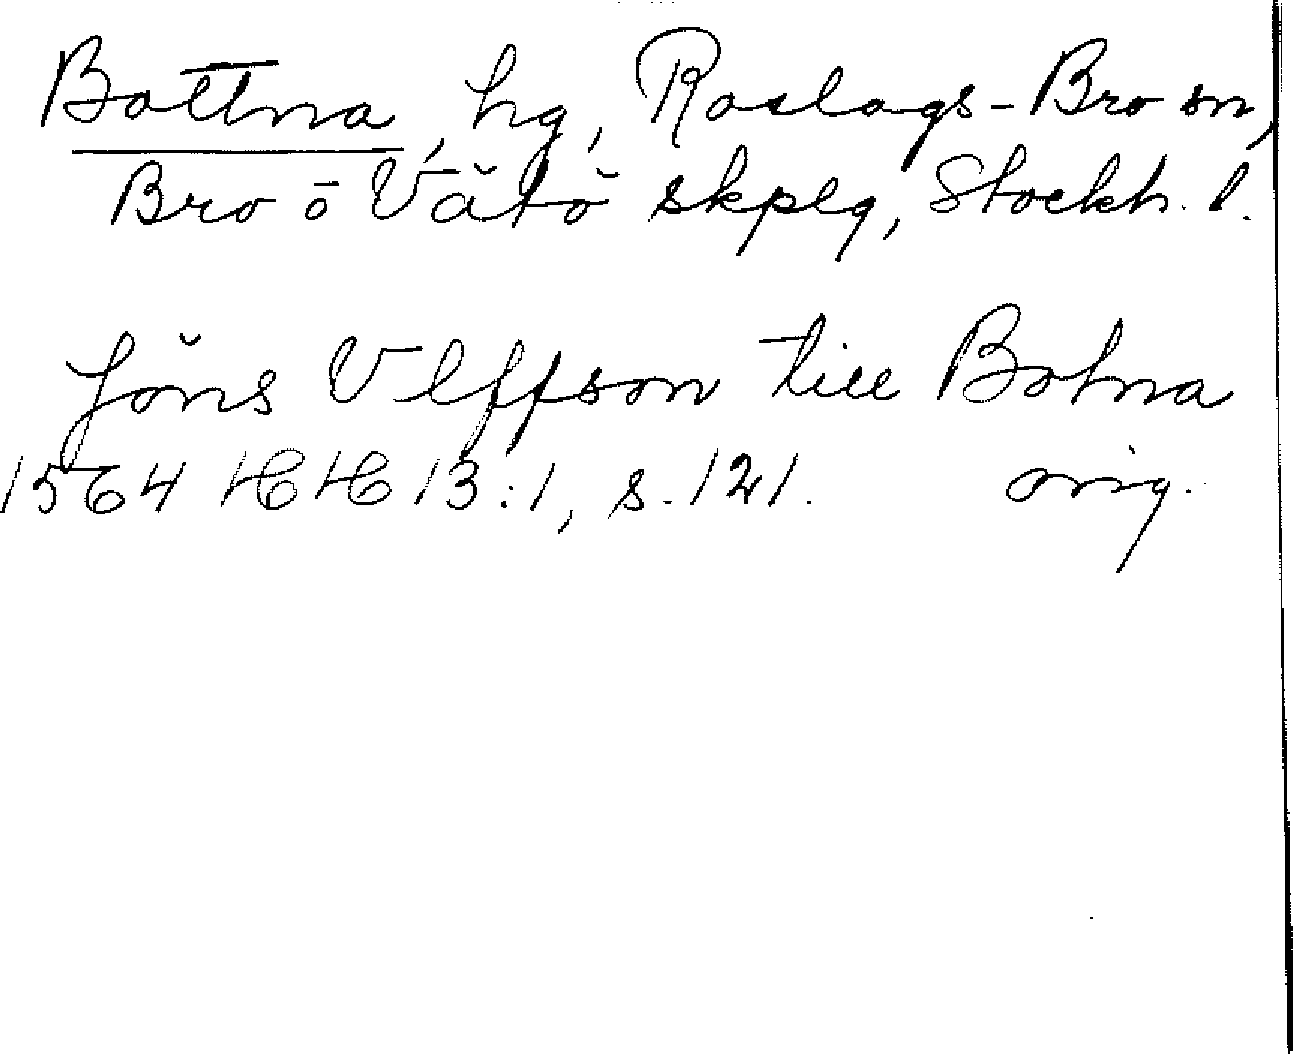 Bottna, hg, Roslags-Bro sn,
Bro o Vätö skplg, Stockh. l.
Jöns Vlffson till Botna
1564 HH 13:1, s. 121. orig.